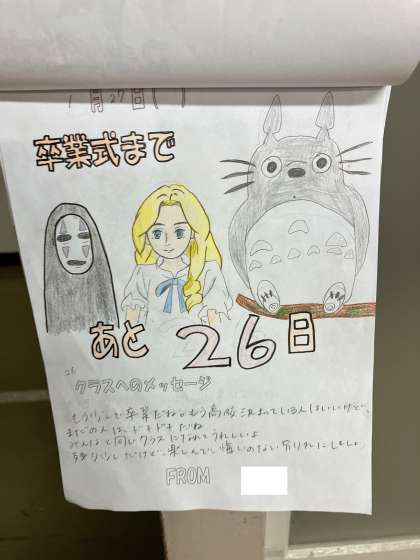 1月27日( )
卒業式まで
あと 26日
26
クラスへのメッセージ
もう少しで卒業だね。もう高校決まっている人はいいけど、
まだの人は、ドキドキだね
みんなと同じクラスになれてうれしいよ
残り少しだけど、楽しんで、悔いのない別れにしましょ。
FROM